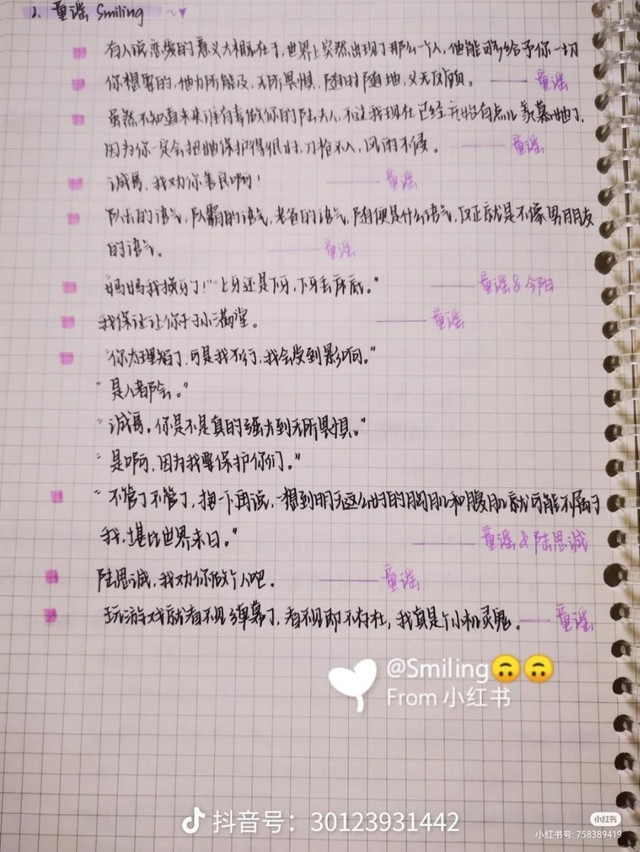 2. 童谣 Smiling ~♥
有人说恋爱的意义大概在于,世界上突然出现了那么一个人,他能够给予你一切
你想要的,他力所能及,无所畏惧,随时随地,义无反顾。 —— 童谣
虽然不知道未来谁有幸做你的陆夫人,不过我现在已经开始有点儿羡慕她了,
因为你一定会把她保护得很好,刀枪不入,风雨不侵。 —— 童谣
诚哥,我劝你善良啊! —— 童谣
队长的语气,队霸的语气,老爸的语气,随便是什么语气,反正就是不像男朋友
的语气。 —— 童谣
妈妈我换牙了!"上牙还是下牙,下牙丢床底。" —— 童谣&今阳
我保证让你子孙满堂。 —— 童谣
"你太理智了,可是我不行,我会受到影响。"
"是人都会。"
"诚哥,你是不是真的强大到无所畏惧。"
"是啊,因为我要保护你们。"
"不管了不管了,摸一下再说,一想到明天这么好的胸肌和腹肌就可能不属于
我,堪比世界末日。" —— 童谣&陆思诚
陆思诚,我劝你做个人吧。 —— 童谣
玩游戏就看不见弹幕了,看不见即不存在,我真是个小机灵鬼。 —— 童谣
@Smiling🙃🙃
From 小红书
抖音号：30123931442
小红书
小红书号: 758389419